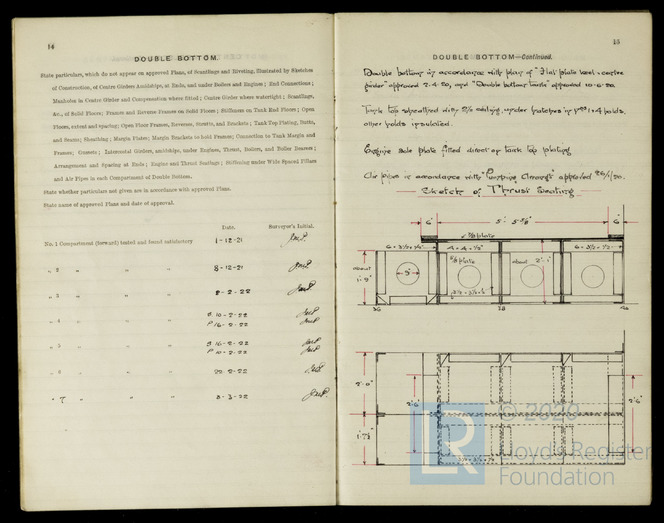 14
DOUBLE BOTTOM.
State particulars, which do not appear on approved Plans, of Scantlings and Riveting, illustrated by Sketches
of Construction, of Centre Girders Amidships, at Ends, and under Boilers and Engines; End Connections;
Manholes in Centre Girder and Compensation where fitted; Centre Girder where watertight; Scantlings,
&c., of Solid Floors; Frames and Reverse Frames on Solid Floors; Stiffeners on Tank End Floors; Open
Floors, extent and spacing; Open Floor Frames, Reverses, Struts, and Brackets; Tank Top Plating, Butts,
and Seams; Sheathing; Margin Plates; Margin Brackets to hold Frames; Connection to Tank Margin and
Frames; Gussets; Intercostal Girders, amidships, under Engines, Thrust, Boilers, and Boiler Bearers;
Arrangement and Spacing at Ends; Engine and Thrust Seatings; Stiffening under Wide Spaced Pillars
and Air Pipes in each Compartment of Double Bottom.
State whether particulars not given are in accordance with approved Plans.
State name of approved Plans and date of approval.
Date. Surveyor's Initial.
No. 1 Compartment (forward) tested and found satisfactory 1-12-21
„ 2 „ „ „ 8-12-21
„ 3 „ „ „ 8-2-22
„ 4 „ „ „ S 10-2-22
P 16-2-22
„ 5 „ „ „ S 16-2-22
P 10-2-22
„ 6 „ „ „ 22-2-22
„ 7 „ „ „ 8-3-22
15
DOUBLE BOTTOM—Continued.
Double bottom in accordance with plan of "Flat plate keel & centre
girder" approved 2-4-20, and "Double bottom" approved 10-6-20.
Tank top sheathed with 2½ ceiling, under hatches in Nos 1 & 4 holds,
other holds insulated.
Engine sole plate fitted direct on tank top plating.
Air pipes in accordance with "Pumping Arrangt" approved 26/1/20.
Sketch of Thrust Seating
6" 5'- 5⅝" 6"
plate
4 × 4 × ½"
about
plate
9"
about 2'-1"
36 38 40
2'-0"
2'-6" 2'-6"
1-7½
LR
© 2020
Lloyd's Register
Foundation